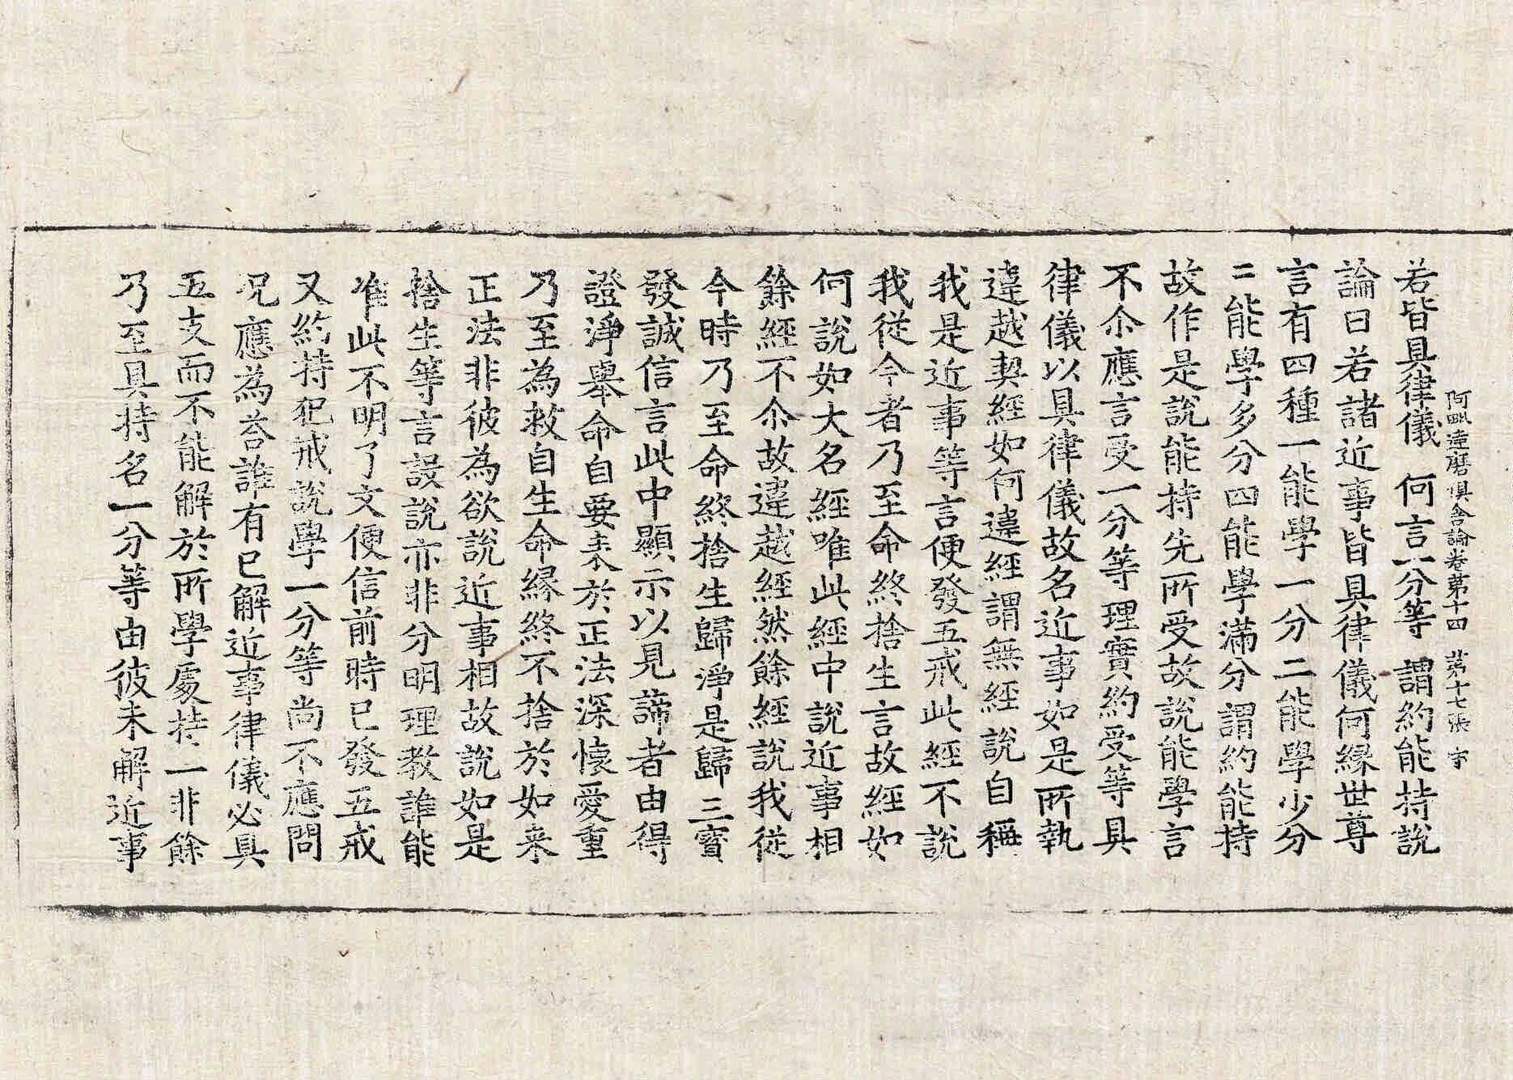 阿毗達磨俱舍論卷第十四 苐十七張 守
若皆具律儀 何言一分等 謂約能持說
論曰若諸近事皆具律儀何緣世尊
言有四種一能學一分二能學少分
二能學多分四能學滿分謂約能持
故作是說能持先所受故說能學言
不尒應言受一分等理實約受等具
律儀以具律儀故名近事如是所執
違越契經如何違經謂無經說自稱
我是近事等言便發五戒此經不說
我從今者乃至命終捨生言故經如
何說如大名經唯此經中說近事相
餘經不尒故違越經然餘經說我從
今時乃至命終捨生歸淨是歸三寶
發誠信言此中顯示以見諦者由得
證淨舉命自要表於正法深懷愛重
乃至為救自生命緣終不捨於如来
正法非彼為欲說近事相故說如是
捨生等言設說亦非分明理教誰能
准此不明了文便信前時已發五戒
又約持犯戒說學一分等尚不應問
况應為荅誰有已解近事律儀必具
五支而不能解於所學處持一非餘
乃至具持名一分等由彼未解近事